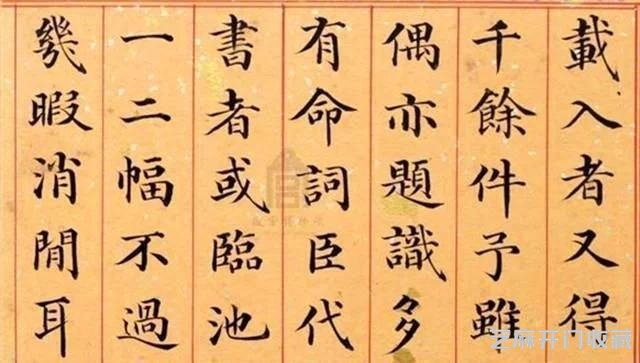 載入者又得
千餘件予雖
偶亦題識多
有命詞臣代
書者或臨池
一二幅不過
幾暇消閒耳
芝麻开门收藏